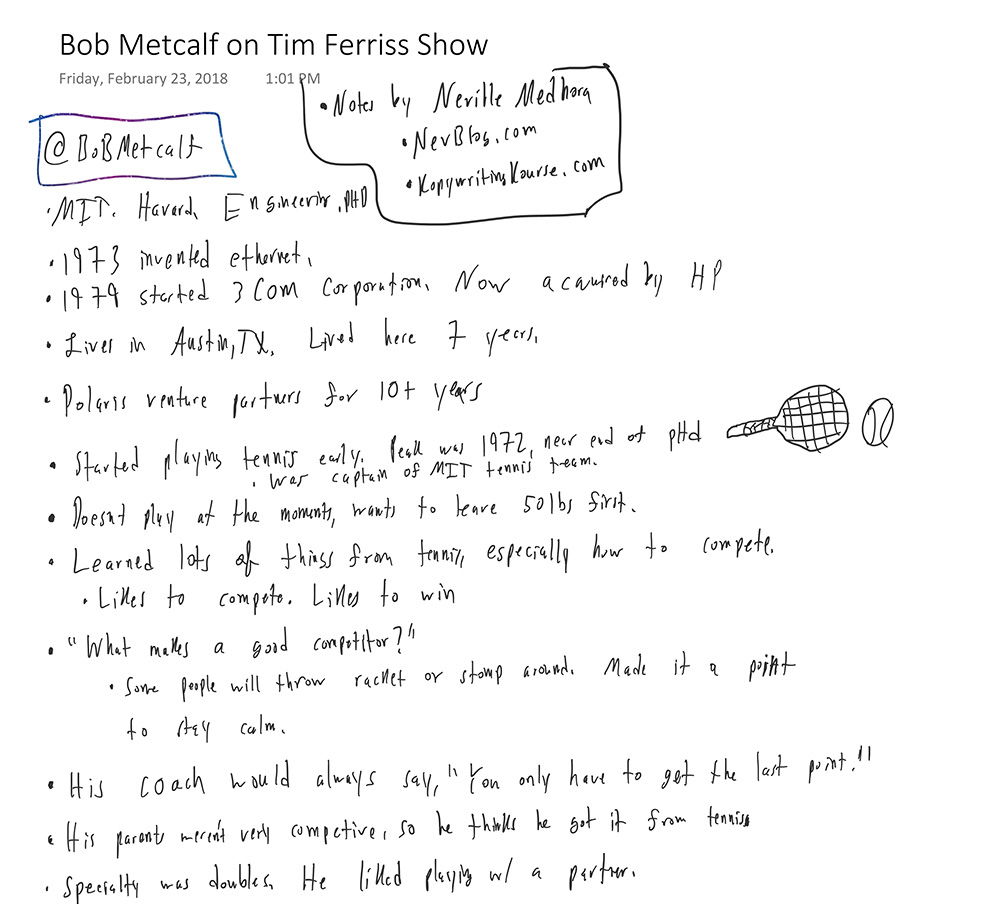 Bob Metcalf on Tim Ferriss Show
Friday, February 23, 2018 1:01 PM
• Notes by Neville Medhora
• NevBlog.com
• KopywritingKourse.com
@BoBMetcalf
• MIT. Havard, Engineerin, PHD
• 1973 invented ethernet.
• 1979 started 3Com Corporation. Now acauired by HP
• Lives in Austin, TX. Lived here 7 years.
• Polaris venture partners for 10+ years
• Started playing tennis early. Peak was 1972, near end of pHd
• Was captain of MIT tennis team.
• Doesnt play at the moments, wants to leave 50lbs first.
• Learned lots of things from tennis, especially how to compete.
• Likes to compete. Likes to win
• "What makes a good competitor?"
• Some people will throw racket or stomp around. Made it a point
to stay calm.
• His coach would always say, "You only have to get the last point."
• His parents weren't very competive, so he thinks he got it from tenniss
• Specialty was doubles. He liked playing w/ a partner.